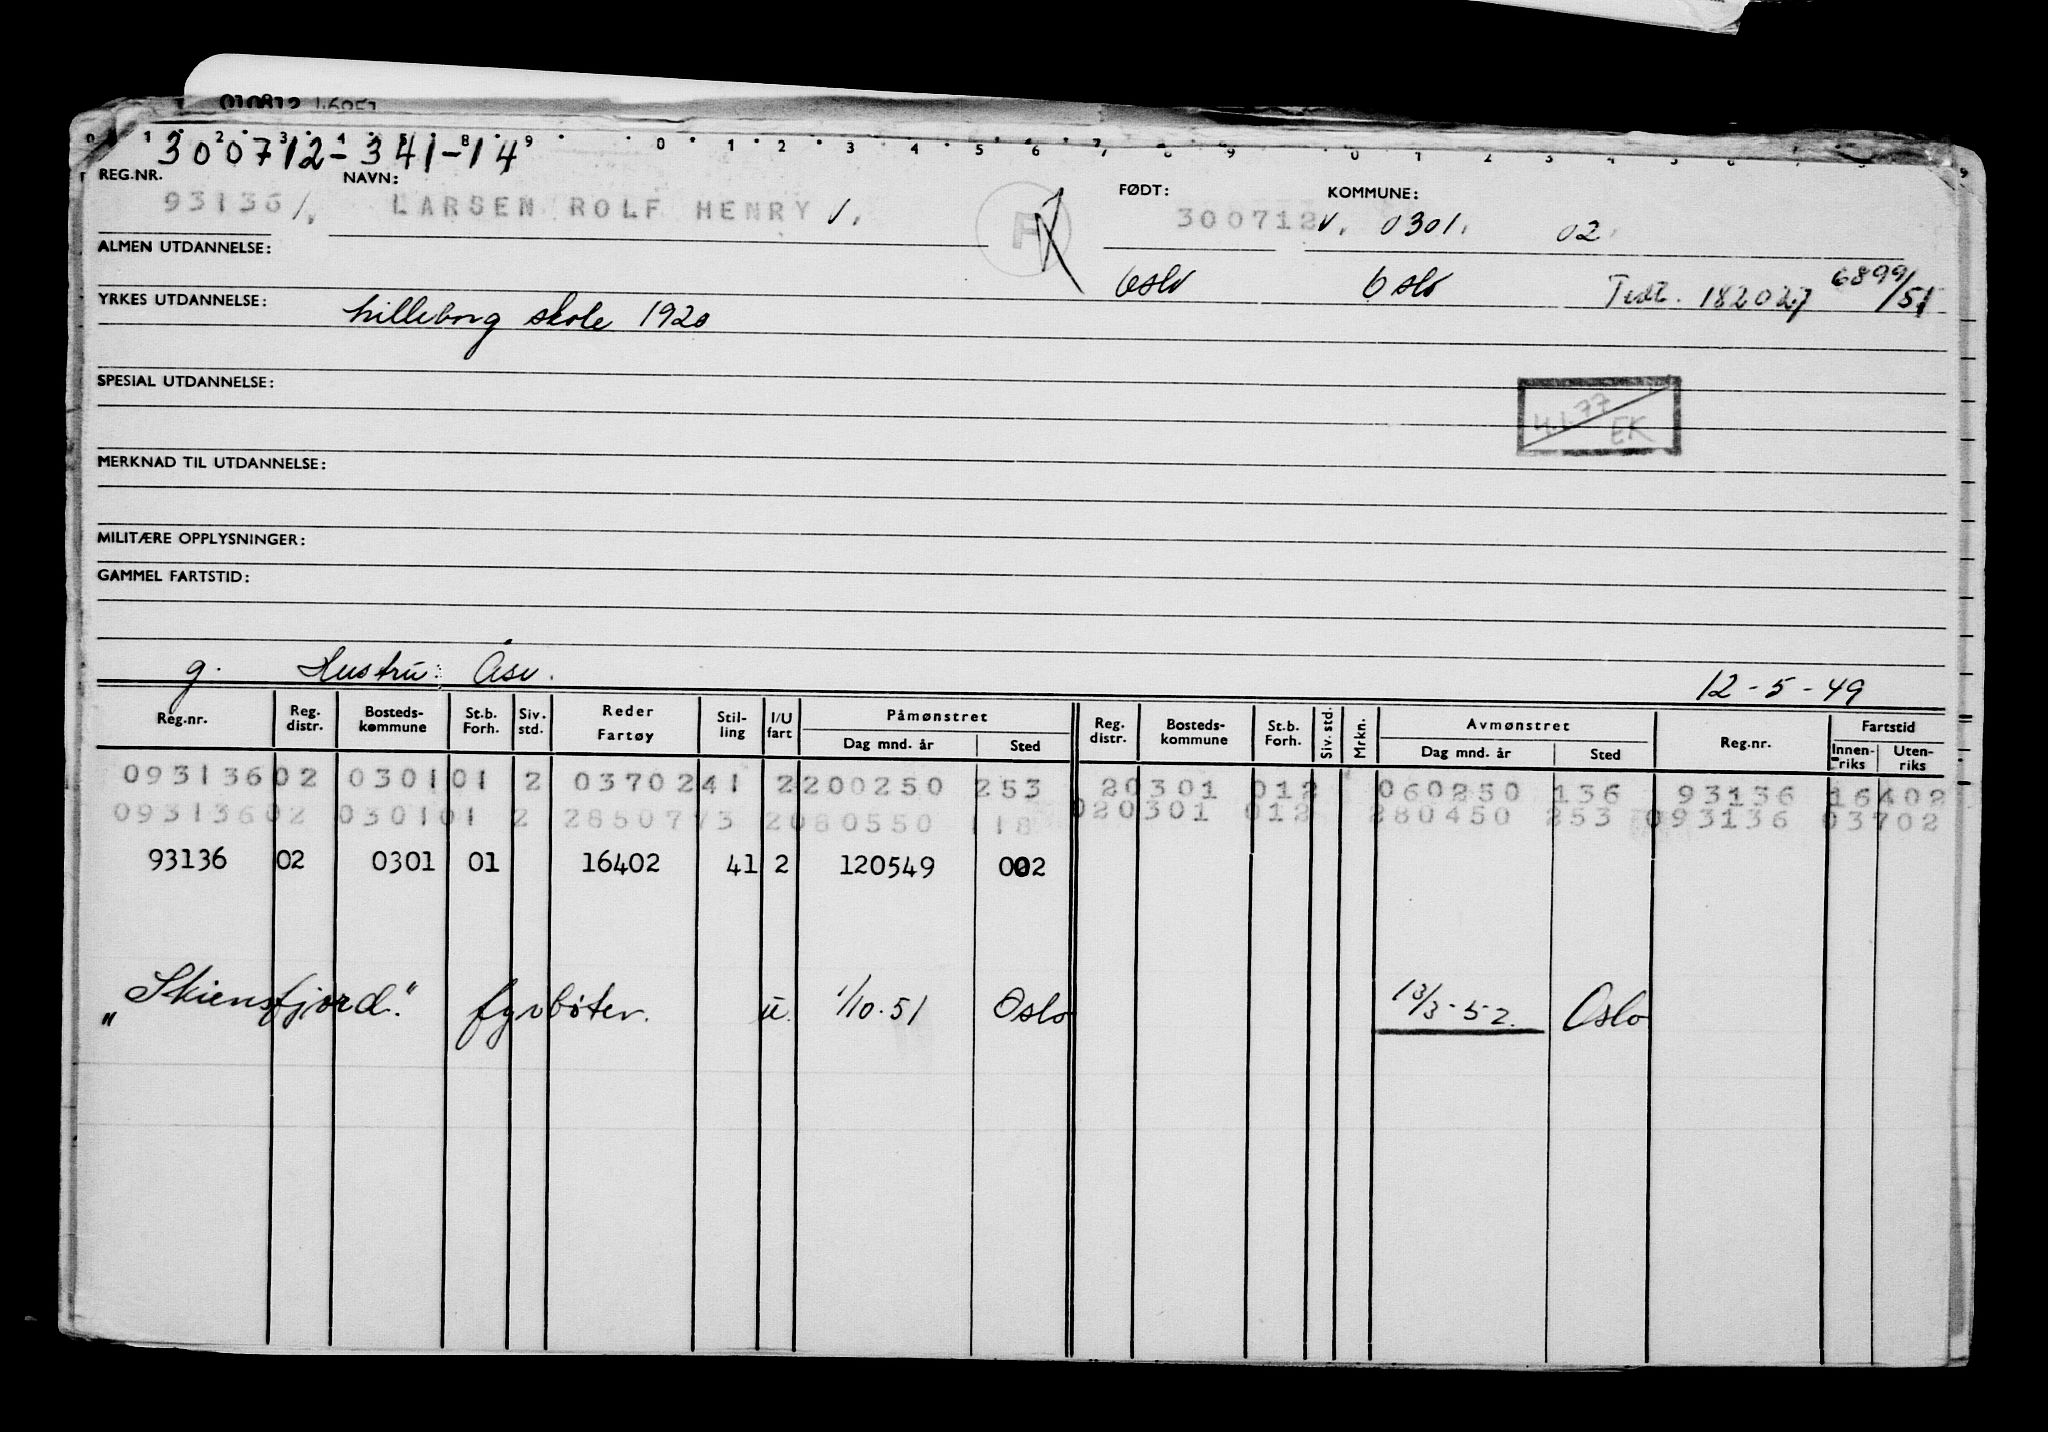 010812
0 1 2 3 4 5 8 9 0 1 2 3 4 5 6 7 8 9 0 1 2 3 4 5 6
300712-341-14
REG.NR. NAVN: FØDT: KOMMUNE:
93136 LARSEN ROLF HENRY 300712 0301. 02.
ALMEN UTDANNELSE:
Oslo Oslo 182027 6899/51
YRKES UTDANNELSE: Lilleborg skole 1920
SPESIAL UTDANNELSE:
4.1.77 EK
MERKNAD TIL UTDANNELSE:
MILITÆRE OPPLYSNINGER:
GAMMEL FARTSTID:
g. Hustru: Åse. 12-5-49
Reg.nr. Reg. distr. Bosteds-kommune St.b. Forh. Siv. std. Reder Fartøy Stil-ling I/U fart Påmønstret Dag mnd. år Sted Reg. distr. Bosteds-kommune St.b. Forh. Siv. std. Mrkn. Avmønstret Dag mnd. år Sted Reg.nr. Fartstid Innen-riks Uten-riks
09313602 030101 2 0370241 2200250 253 20301 012 060250 136 93136 16402
09313602 030101 2 2850773 2080550 118 020301 012 280450 253 093136 03702
93136 02 0301 01 16402 41 2 120549 002
„Skiensfjord." fyrbøter. u. 1/10.51 Oslo 13/3-52. Oslo